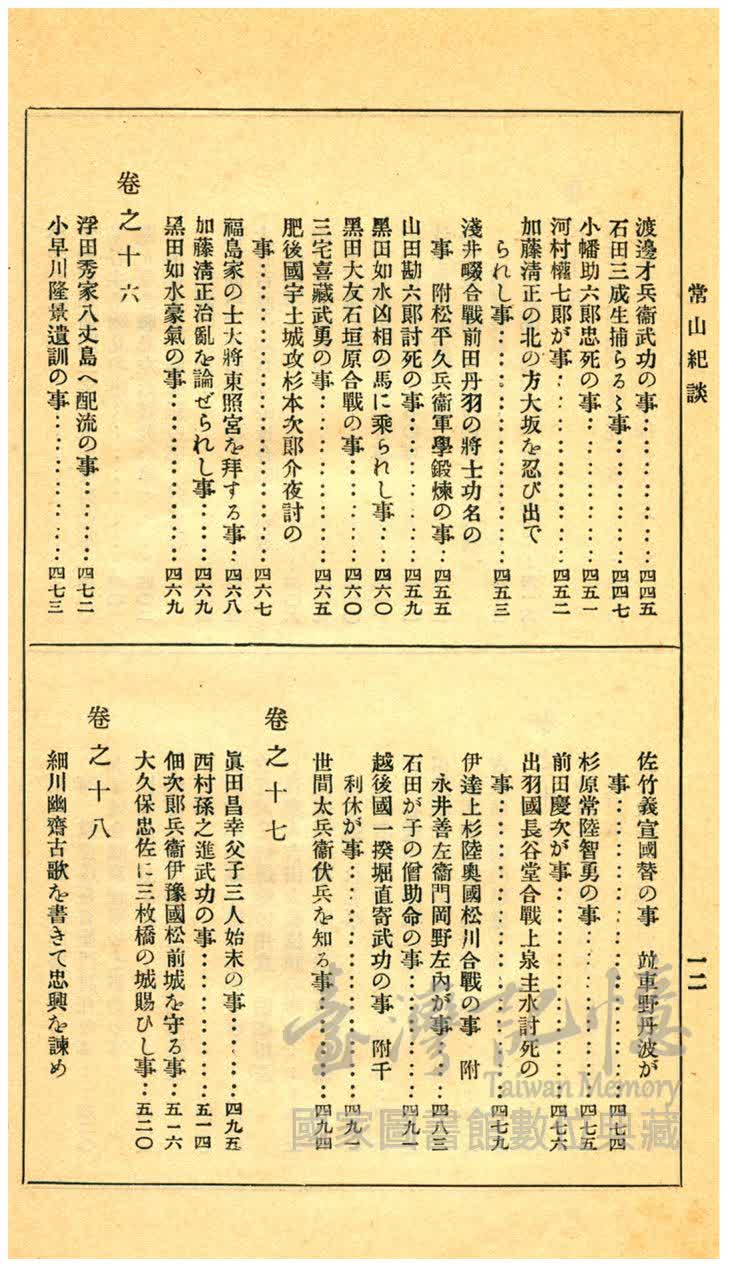 常山紀談
一二
渡邊才兵衞武功の事………………四四五
石田三成生捕らるゝ事……………四四七
小幡助六郞忠死の事………………四五一
河村權七郞が事……………………四五二
加藤淸正の北の方大坂を忍び出で
られし事……………………………四五三
淺井畷合戰前田丹羽の將士功名の
事　附松平久兵衞軍學鍛煉の事…四五五
山田勘六郞討死の事………………四五九
黑田如水凶相の馬に乘られし事…四六〇
黑田大友石垣原合戰の事…………四六〇
三宅喜藏武勇の事…………………四六五
肥後國宇土城攻杉本次郞介夜討の
事……………………………………四六七
福島家の士大將東照宮を拜する事…四六八
加藤淸正治亂を論ぜられし事……四六九
黑田如水豪氣の事…………………四六九
卷之十六
浮田秀家八丈島へ配流の事………四七二
小早川隆景遺訓の事………………四七三
佐竹義宣國替の事　　車野丹波が
事……………………………………四七四
杉原常陸智勇の事…………………四七五
前田慶次が事………………………四七六
出羽國長谷堂合戰上泉主水討死の
事……………………………………四七九
伊達上杉陸奧國松川合戰の事　附
永井善左衞門岡野左內が事………四八三
石田が子の僧助命の事……………四九一
越後國一揆堀直寄武功の事　附千
利休が事……………………………四九一
世間太兵衞伏兵を知る事…………四九四
卷之十七
眞田昌幸父子三人始末の事………四九五
西村孫之進武功の事………………五一四
佃次郞兵衞伊豫國松前城を守る事…五一六
大久保忠佐に三枚橋の城賜ひし事…五二〇
卷之十八
細川幽齋古歌を書きて忠興を諫め
臺灣記憶
Taiwan Memory
國家圖書館數位典藏